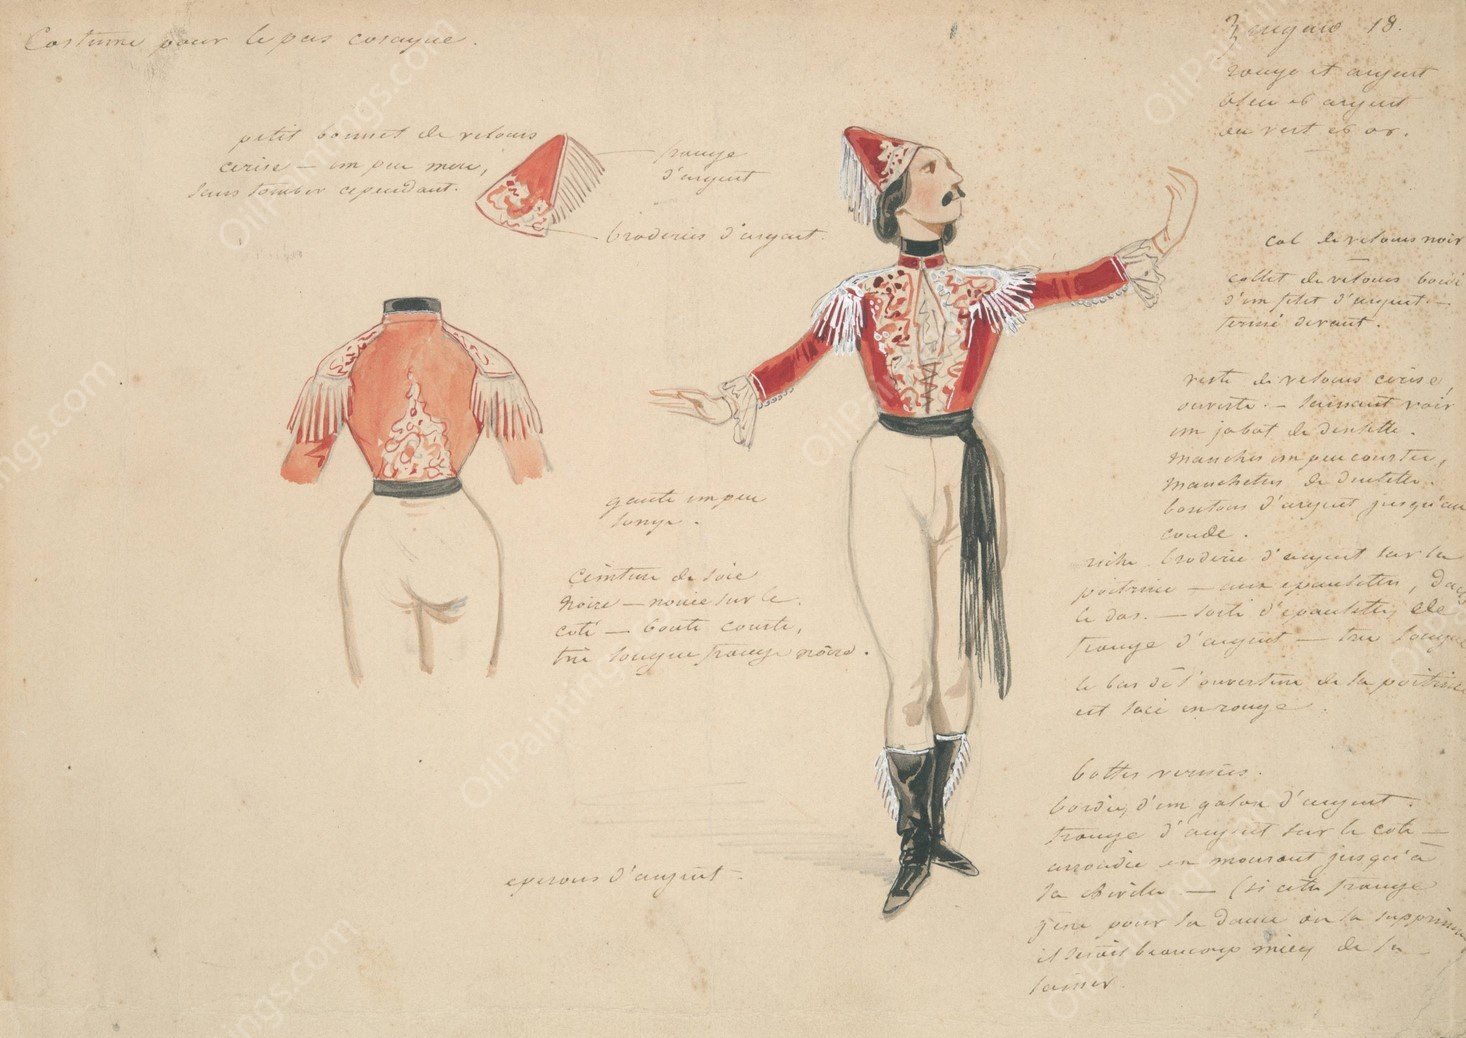 Costume pour le pas cosaque.
18.
rouge et argent
bleu et argent
ou vert et or.
petit bonnet de velours
cerise — un peu mou,
sans tomber cependant.
frange
d'argent
broderies d'argent.
col de velours noir
collet de velours bordé
d'un filet d'argent —
fermé devant.
veste de velours cerise,
ouverte. — laissant voir
un jabot de dentelle.
manches un peu courtes,
manchettes de dentelle.
boutons d'argent jusqu'au
coude.
riche broderie d'argent sur la
poitrine — aux épaulettes, dans
le dos. — sorte d'épaulettes de
frange d'argent — très longue
le bas de l'ouverture de la poitrine
est lacé en rouge.
gants un peu
longs.
ceinture de soie
noire — nouée sur le
côté — bouts courts,
très longue frange noire.
bottes vernies.
bordées d'un galon d'argent.
frange d'argent sur le côté —
arrondie en mourant jusqu'à
la cheville — (si cette frange
gêne pour la danse on la supprime
il serait beaucoup mieux de la
laisser.
éperons d'argent.
OilPaintings.com